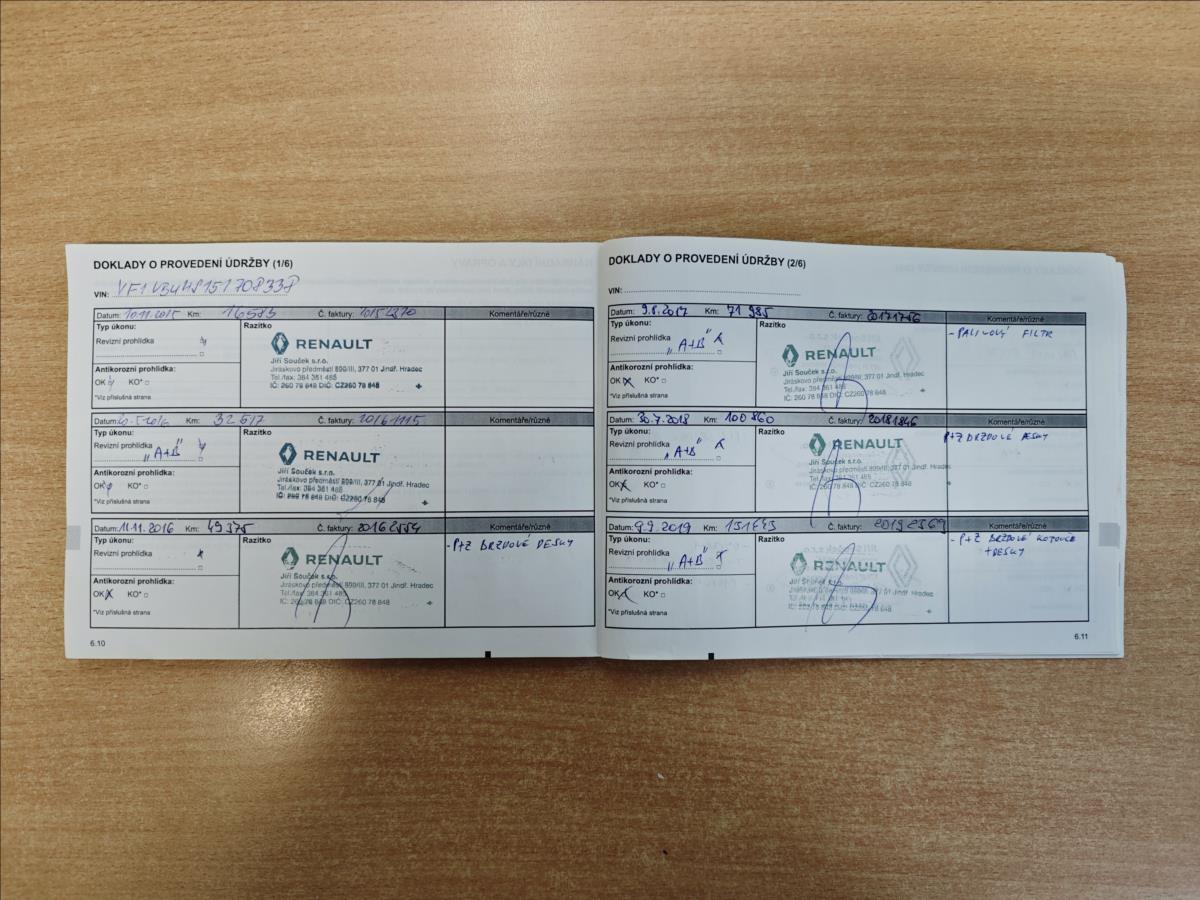 DOKLADY O PROVEDENÍ ÚDRŽBY (1/6)
VIN:
Datum: 10.11.2015 Km: 16583 Č. faktury: Komentáře/různé
Typ úkonu:
Revizní prohlídka
Antikorozní prohlídka:
OK KO*
*Viz příslušná strana
Razítko
RENAULT
Jiří Souček s.r.o.
Jiráskovo předměstí 899/III, 377 01 Jindř. Hradec
Tel./fax: 384 361 485
IČ: 260 78 848 DIČ: CZ260 78 848
Datum: Km: 32 517 Č. faktury: 20161115 Komentáře/různé
Typ úkonu:
Revizní prohlídka
„A+B"
Antikorozní prohlídka:
OK KO*
*Viz příslušná strana
Razítko
RENAULT
Jiří Souček s.r.o.
Jiráskovo předměstí 899/III, 377 01 Jindř. Hradec
Tel./fax: 384 361 485
IČ: 260 78 848 DIČ: CZ260 78 848
Datum: 11.11.2016 Km: 49375 Č. faktury: 20162554 Komentáře/různé
Typ úkonu:
Revizní prohlídka
Antikorozní prohlídka:
OK KO*
*Viz příslušná strana
Razítko
RENAULT
Jiří Souček s.r.o.
Jiráskovo předměstí 899/III, 377 01 Jindř. Hradec
Tel./fax: 384 361 485
IČ: 260 78 848 DIČ: CZ260 78 848
- P+Z BRZDOVÉ DESKY
6.10
DOKLADY O PROVEDENÍ ÚDRŽBY (2/6)
VIN:
Datum: 9.8.2017 Km: 71 985 Č. faktury: 20171756 Komentáře/různé
Typ úkonu:
Revizní prohlídka
„A+B"
Antikorozní prohlídka:
OK KO*
*Viz příslušná strana
Razítko
RENAULT
Jiří Souček s.r.o.
Jiráskovo předměstí 899/III, 377 01 Jindř. Hradec
Tel./fax: 384 361 485
IČ: 260 78 848 DIČ: CZ260 78 848
- PALIVOVÝ FILTR
Datum: 30.7.2018 Km: 100 860 Č. faktury: 20181846 Komentáře/různé
Typ úkonu:
Revizní prohlídka
„A+B"
Antikorozní prohlídka:
OK KO*
*Viz příslušná strana
Razítko
RENAULT
Jiří Souček s.r.o.
Jiráskovo předměstí 899/III, 377 01 Jindř. Hradec
Tel./fax: 384 361 485
IČ: 260 78 848 DIČ: CZ260 78 848
P+Z BRZDOVÉ DESKY
Datum: 9.9.2019 Km: 131643 Č. faktury: 20192369 Komentáře/různé
Typ úkonu:
Revizní prohlídka
„A+B"
Antikorozní prohlídka:
OK KO*
*Viz příslušná strana
Razítko
RENAULT
Jiří Souček s.r.o.
Jiráskovo předměstí 899/III, 377 01 Jindř. Hradec
IČ: 260 78 848 DIČ: CZ260 78 848
- P+Z BRZDOVÉ KOTOUČE
+DESKY
6.11